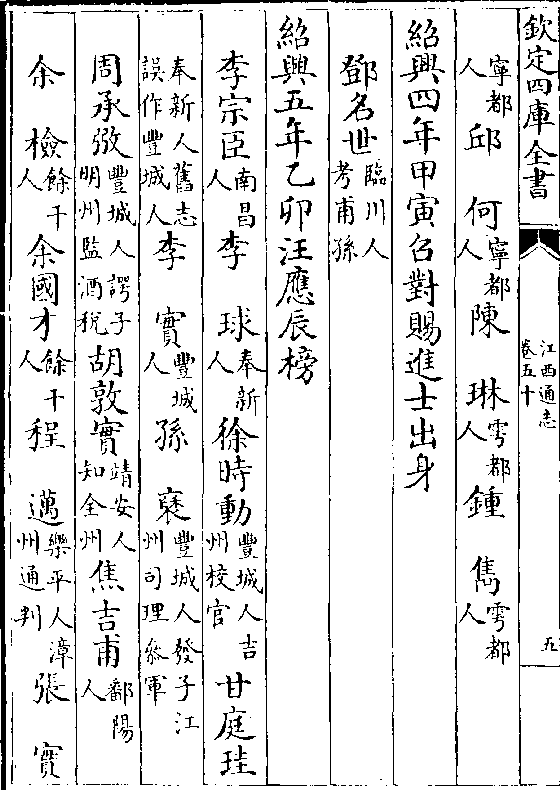 欽定四庫全書
江西通志
卷五十
五
寧都人邱何寧都人陳琳雩都人鍾雋雩都人
紹興四年甲寅召對賜進士出身
鄧名世臨川人考甫孫
紹興五年乙卯汪應辰榜
李宗臣南昌人李球奉新人徐時動豐城人吉州校官甘庭珪
奉新人舊志誤作豐城人李實豐城人孫褎豐城人發子江州司理叅軍
周承弢豐城人諤子明州監酒稅胡敦實靖安人知全州焦吉甫鄱陽人
余檢餘干人余國才餘干人程邁樂平人漳州通判張實